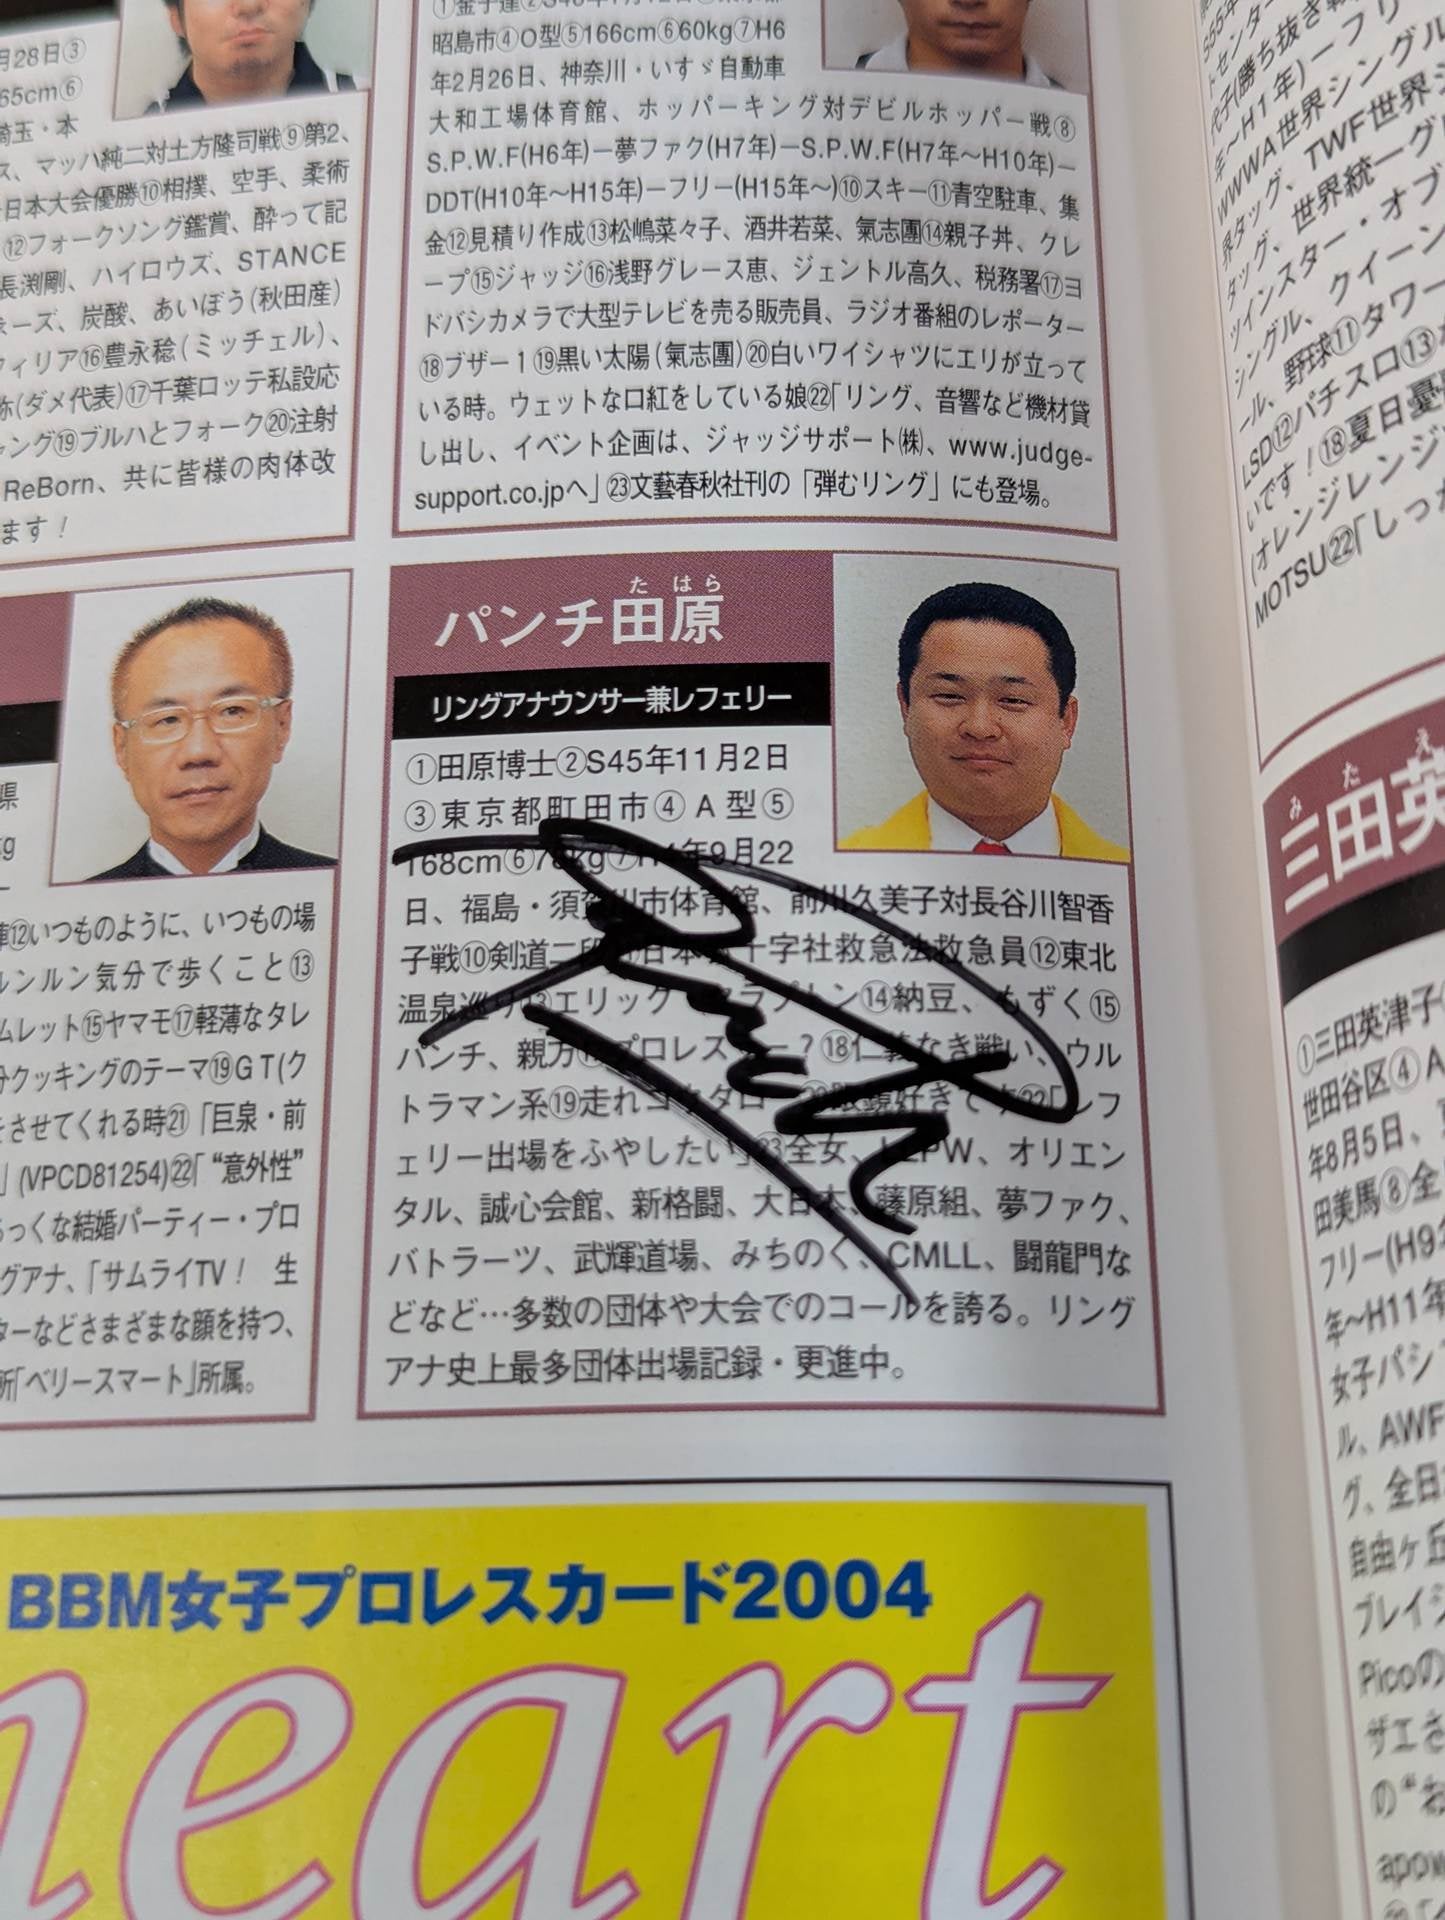 月28日③
65cm⑥
埼玉・本
ス、マッハ純二対土方隆司戦⑨第2、
日本大会優勝⑩相撲、空手、柔術
⑫フォークソング鑑賞、酔って記
長渕剛、ハイロウズ、STANCE
ーズ、炭酸、あいぼう(秋田産)
フィリア⑯豊永稔(ミッチェル)、
弥(ダメ代表)⑰千葉ロッテ私設応
ャング⑲ブルハとフォーク⑳注射
ReBorn、共に皆様の肉体改
ます!
昭島市④O型⑤166cm⑥60kg⑦H6
年2月26日、神奈川・いすゞ自動車
大和工場体育館、ホッパーキング対デビルホッパー戦⑧
S.P.W.F(H6年)ー夢ファク(H7年)ーS.P.W.F(H7年〜H10年)ー
DDT(H10年〜H15年)ーフリー(H15年〜)⑩スキー⑪青空駐車、集
金⑫見積り作成⑬松嶋菜々子、酒井若菜、氣志團⑭親子丼、クレ
ープ⑮ジャッジ⑯浅野グレース恵、ジェントル高久、税務署⑰ヨ
ドバシカメラで大型テレビを売る販売員、ラジオ番組のレポーター
⑱ブザー1⑲黒い太陽(氣志團)⑳白いワイシャツにエリが立って
いる時。ウェットな口紅をしている娘㉒「リング、音響など機材貸
し出し、イベント企画は、ジャッジサポート㈱、www.judge-
support.co.jpへ」㉓文藝春秋社刊の「弾むリング」にも登場。
県
kg
⑫いつものように、いつもの場
ルンルン気分で歩くこと⑬
ムレット⑮ヤマモ⑰軽薄なタレ
分クッキングのテーマ⑲GT(ク
をさせてくれる時㉑「巨泉・前
」(VPCD81254)㉒「“意外性”
らっくな結婚パーティー・プロ
グアナ、「サムライTV! 生
ターなどさまざまな顔を持つ、
所「ベリースマート」所属。
た はら
パンチ田原
リングアナウンサー兼レフェリー
①田原博士②S45年11月2日
③東京都町田市④A型⑤
168cm⑥78kg⑦H4年9月22
日、福島・須賀川市体育館、前川久美子対長谷川智香
子戦⑩剣道二段⑪日本赤十字社救急法救急員⑫東北
温泉巡り⑬エリック・クラプトン⑭納豆、もずく⑮
パンチ、親方⑰プロレスラー?⑱仁義なき戦い、ウル
トラマン系⑲走れコウタロー⑳眼鏡好きです㉒「レフ
ェリー出場をふやしたい」㉓全女、LLPW、オリエン
タル、誠心会館、新格闘、大日本、藤原組、夢ファク、
バトラーツ、武輝道場、みちのく、CMLL、闘龍門な
どなど…多数の団体や大会でのコールを誇る。リング
アナ史上最多団体出場記録・更進中。
BBM女子プロレスカード2004
heart
トセンター
代子(勝ち抜き戦
年〜H1年)ーフリー
WWWA世界シングル
界タッグ、TWF世界
タッグ、世界統一
ツインスター・オブ
シングル、クイーン
ール、野球⑪タワー
LSD⑫パチスロ⑬
いです!⑱夏日憂
(オレンジレンジ
MOTSU㉒「しっか
み た え
三田英
①三田英津子
世田谷区④A
年8月5日、
田美馬⑧全
フリー(H9年
年〜H11年
女子パシフ
ル、AWF
グ、全日
自由ヶ丘
ブレイジ
Picoの
ザエさ
の“ね
apow